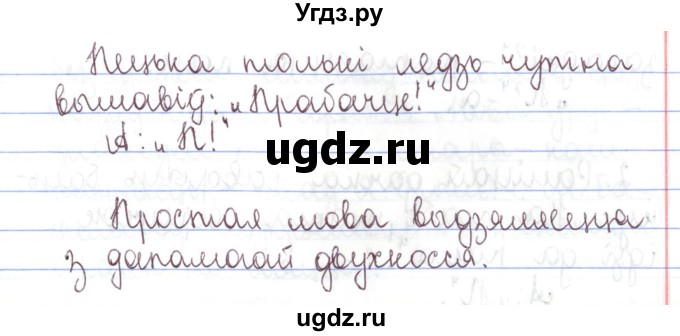 Угдз.ру
Пецька толькі ледзь чутна
вымавіў: „Прабачце!"
А: „П!"
ugdz.ru
Простая мова выдзяляецца
з дапамогай двухкосся.
ugdz.ru